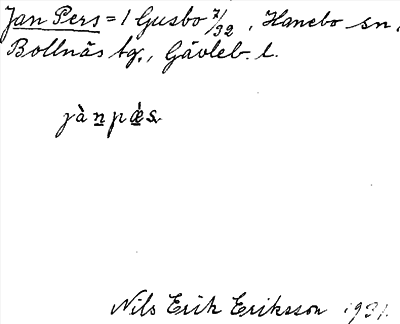 Jan Pers = 1 Gusbo 7/32, Hanebo sn,
Bollnäs tg., Gävleb. l.
jànpǽs
Nils Erik Eriksson 1931.